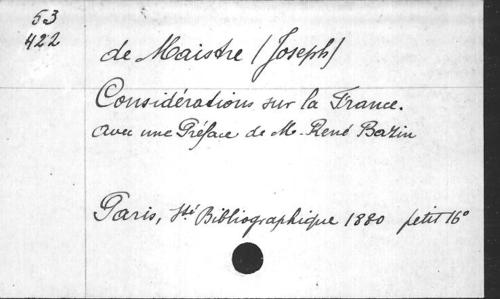 53
422
de Maistre (Joseph)
Considérations sur la France.
avec une Préface de M. René Bazin
Paris, Sté Bibliographique 1880 petit 16°